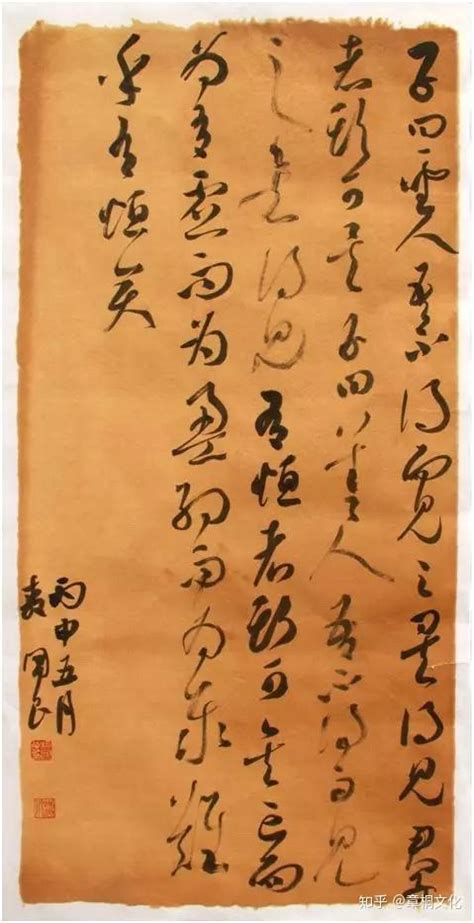 子曰聖人吾不得而見之矣得見君子
者斯可矣子曰善人吾不得而見
之矣得見有恒者斯可矣亡而
為有虛而為盈約而為泰難
乎有恒矣
丙申五月
知乎 @章桐文化